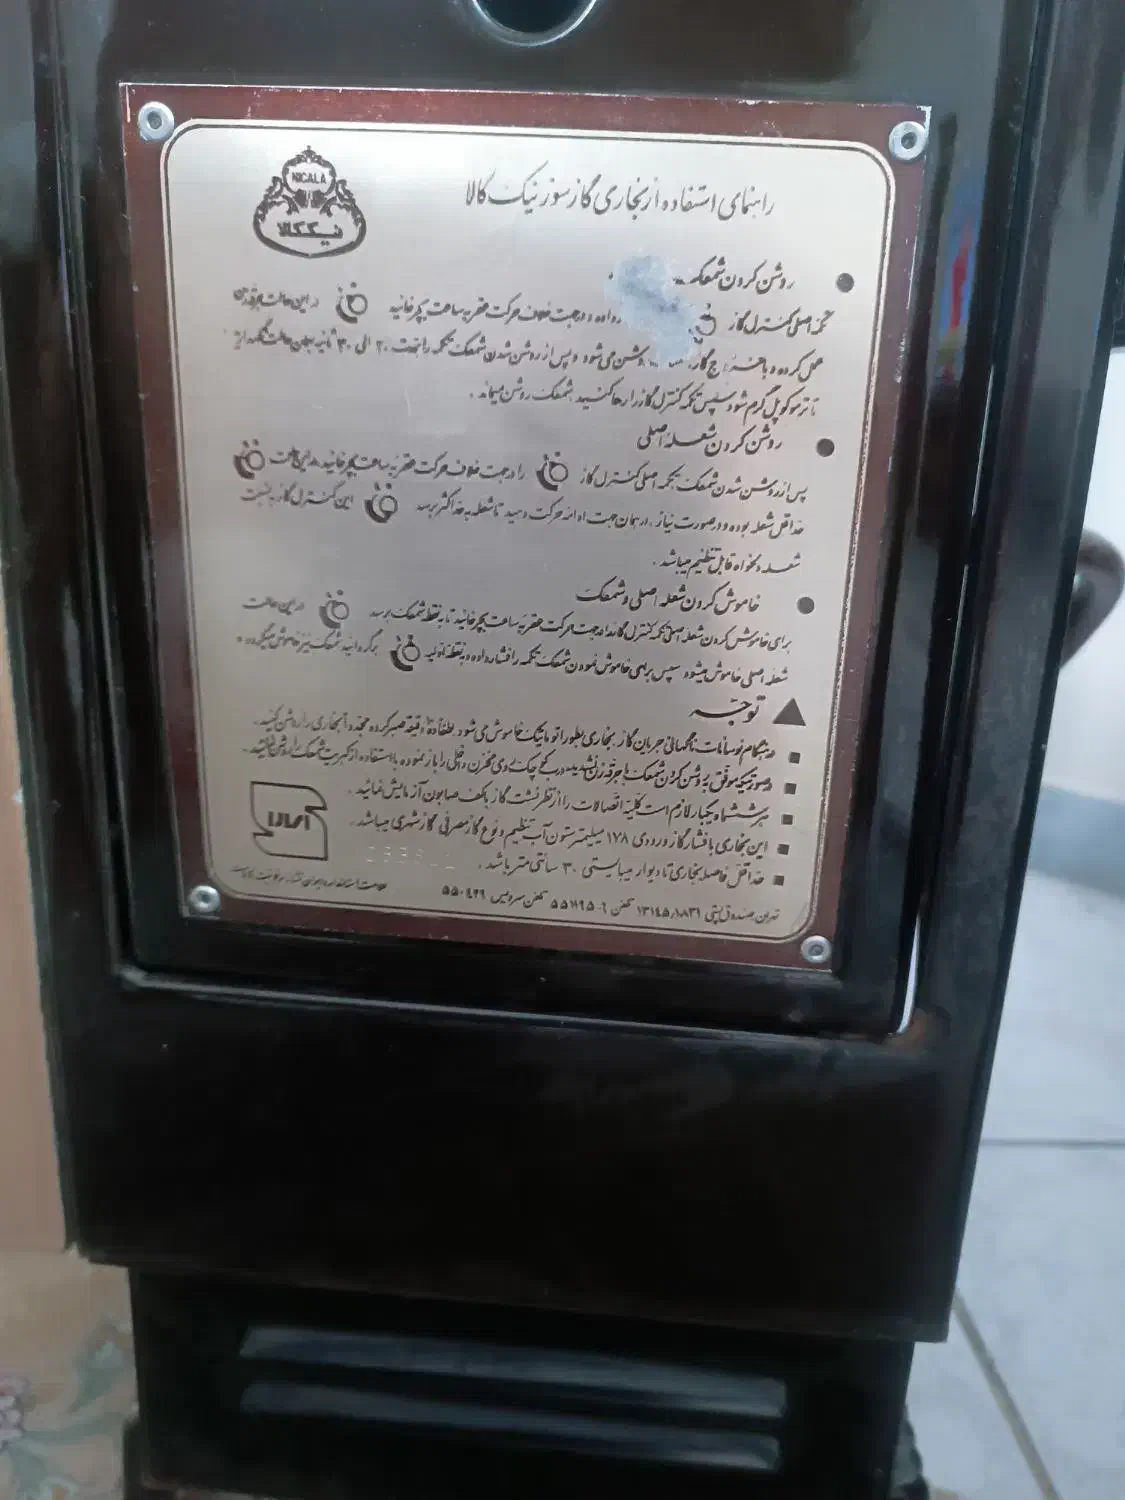 NICALA
نیک کالا
راهنمای استفاده از بخاری گاز سوز نیک کالا
روشن کردن شمعک
تکمه اصلی کنترل گاز داده و در جهت خلاف حرکت عقربه ساعت بچرخانید در این حالت جرقه زن
عمل کرده و با خروج گاز روشن می شود و پس از روشن شدن شمعک تکمه را بمدت ۲۰ الی ۳۰ ثانیه بهمین حالت نگهدارید
تا ترموکوپل گرم شود سپس تکمه کنترل گاز را رها کنید شمعک روشن میماند.
روشن کردن شعله اصلی
پس از روشن شدن شمعک تکمه اصلی کنترل گاز را در جهت خلاف حرکت عقربه ساعت بچرخانید در این حالت
حداقل شعله بوده و در صورت نیاز در همان جهت ادامه حرکت دهید تا شعله به حداکثر برسد این کنترل گاز به نسبت
شعله دلخواه قابل تنظیم میباشد.
خاموش کردن شعله اصلی و شمعک
برای خاموش کردن شعله اصلی تکمه کنترل گاز را در جهت حرکت عقربه ساعت بچرخانید تا به نقطه شمعک برسد در این حالت
شعله اصلی خاموش میشود سپس برای خاموش نمودن شمعک تکمه را فشار داده و به نقطه اولیه برگردانید شمعک نیز خاموش میگردد.
توجه
در هنگام نوسانات ناگهانی جریان گاز بخاری بطور اتوماتیک خاموش می شود لطفاً ۱۰ دقیقه صبر کرده مجدداً بخاری را روشن کنید.
در صورتیکه موفق به روشن کردن شمعک با جرقه زن نشدید درب کوچک روی مخزن داخلی را باز نموده با استفاده از کبریت شمعک را روشن نمائید.
هر شش ماه یکبار لازم است کلیه اتصالات را از نظر نشت گاز با کف صابون آزمایش نمائید.
این بخاری با فشار گاز ورودی ۱۷۸ میلیمتر ستون آب تنظیم و نوع گاز مصرفی گاز شهری میباشد.
حداقل فاصله بخاری تا دیوار میبایستی ۳۰ سانتی متر باشد.
تهران صندوق پستی ۱۳۱۴۵/۱۸۳۱ تلفن ۵۵۱۹۹۵۰۹ تلفن سرویس ۵۵۰۴۲۹